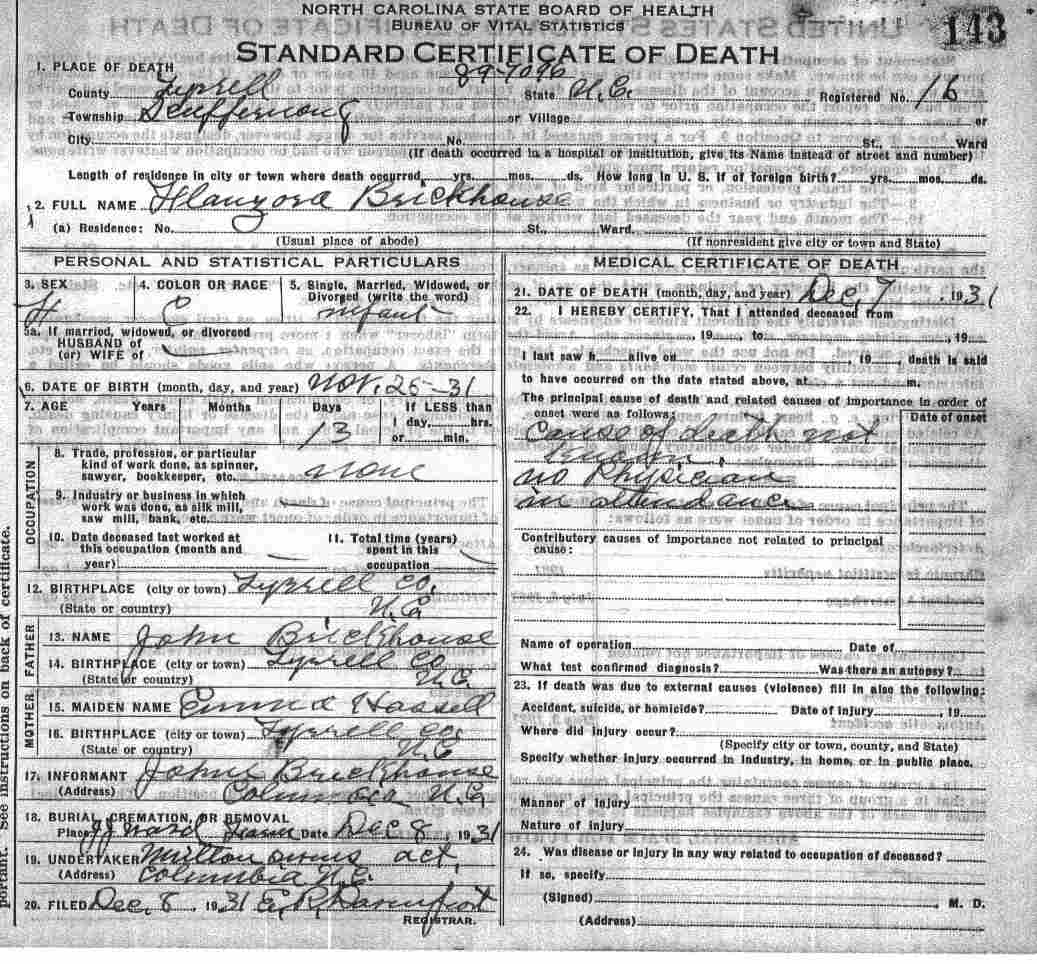 NORTH CAROLINA STATE BOARD OF HEALTH
BUREAU OF VITAL STATISTICS
143
STANDARD CERTIFICATE OF DEATH
1. PLACE OF DEATH 89-7096
County Tyrrell State N.C. Registered No. 16
Township Scuppernong or Village or
City No. St., Ward
(If death occurred in a hospital or institution, give its Name instead of street and number)
Length of residence in city or town where death occurred, yrs. mos. ds. How long in U. S. if of foreign birth? yrs. mos. ds.
2. FULL NAME Brickhouse
(a) Residence: No. St., Ward.
(Usual place of abode) (If nonresident give city or town and State)
PERSONAL AND STATISTICAL PARTICULARS
3. SEX 4. COLOR OR RACE 5. Single, Married, Widowed, or Divorced (write the word)
F C infant
5a. If married, widowed, or divorced
HUSBAND of
(or) WIFE of
6. DATE OF BIRTH (month, day, and year) Nov. 25-31
7. AGE Years Months Days If LESS than
13 1 day, hrs.
or min.
OCCUPATION
8. Trade, profession, or particular
kind of work done, as spinner,
sawyer, bookkeeper, etc. none
9. Industry or business in which
work was done, as silk mill,
saw mill, bank, etc.
10. Date deceased last worked at
this occupation (month and
year)
11. Total time (years)
spent in this
occupation
12. BIRTHPLACE (city or town) Tyrrell Co.
(State or country) N.C.
FATHER
13. NAME John Brickhouse
14. BIRTHPLACE (city or town) Tyrrell Co
(State or country) N.C.
MOTHER
15. MAIDEN NAME Emma Hassell
16. BIRTHPLACE (city or town) Tyrrell Co.
(State or country) N.C
17. INFORMANT John Brickhouse
(Address) Columbia N.C
18. BURIAL, CREMATION, OR REMOVAL
Place Ward Farm Date Dec 8, 1931
19. UNDERTAKER act
(Address) Columbia N.C.
20. FILED Dec. 8, 1931 E. R. Davenport
REGISTRAR.
MEDICAL CERTIFICATE OF DEATH
21. DATE OF DEATH (month, day, and year) Dec, 7, 1931
22. I HEREBY CERTIFY, That I attended deceased from
, 19 to , 19
I last saw h alive on , 19 , death is said
to have occurred on the date stated above, at m.
The principal cause of death and related causes of importance in order of
onset were as follows: Date of onset
Cause of death not
known.
no Physician
in attendance
Contributory causes of importance not related to principal
cause:
Name of operation Date of
What test confirmed diagnosis? Was there an autopsy?
23. If death was due to external causes (violence) fill in also the following:
Accident, suicide, or homicide? Date of injury , 19
Where did injury occur?
(Specify city or town, county, and State)
Specify whether injury occurred in industry, in home, or in public place.
Manner of injury
Nature of injury
24. Was disease or injury in any way related to occupation of deceased?
If so, specify
(Signed) , M. D.
(Address)
portant. See instructions on back of certificate.